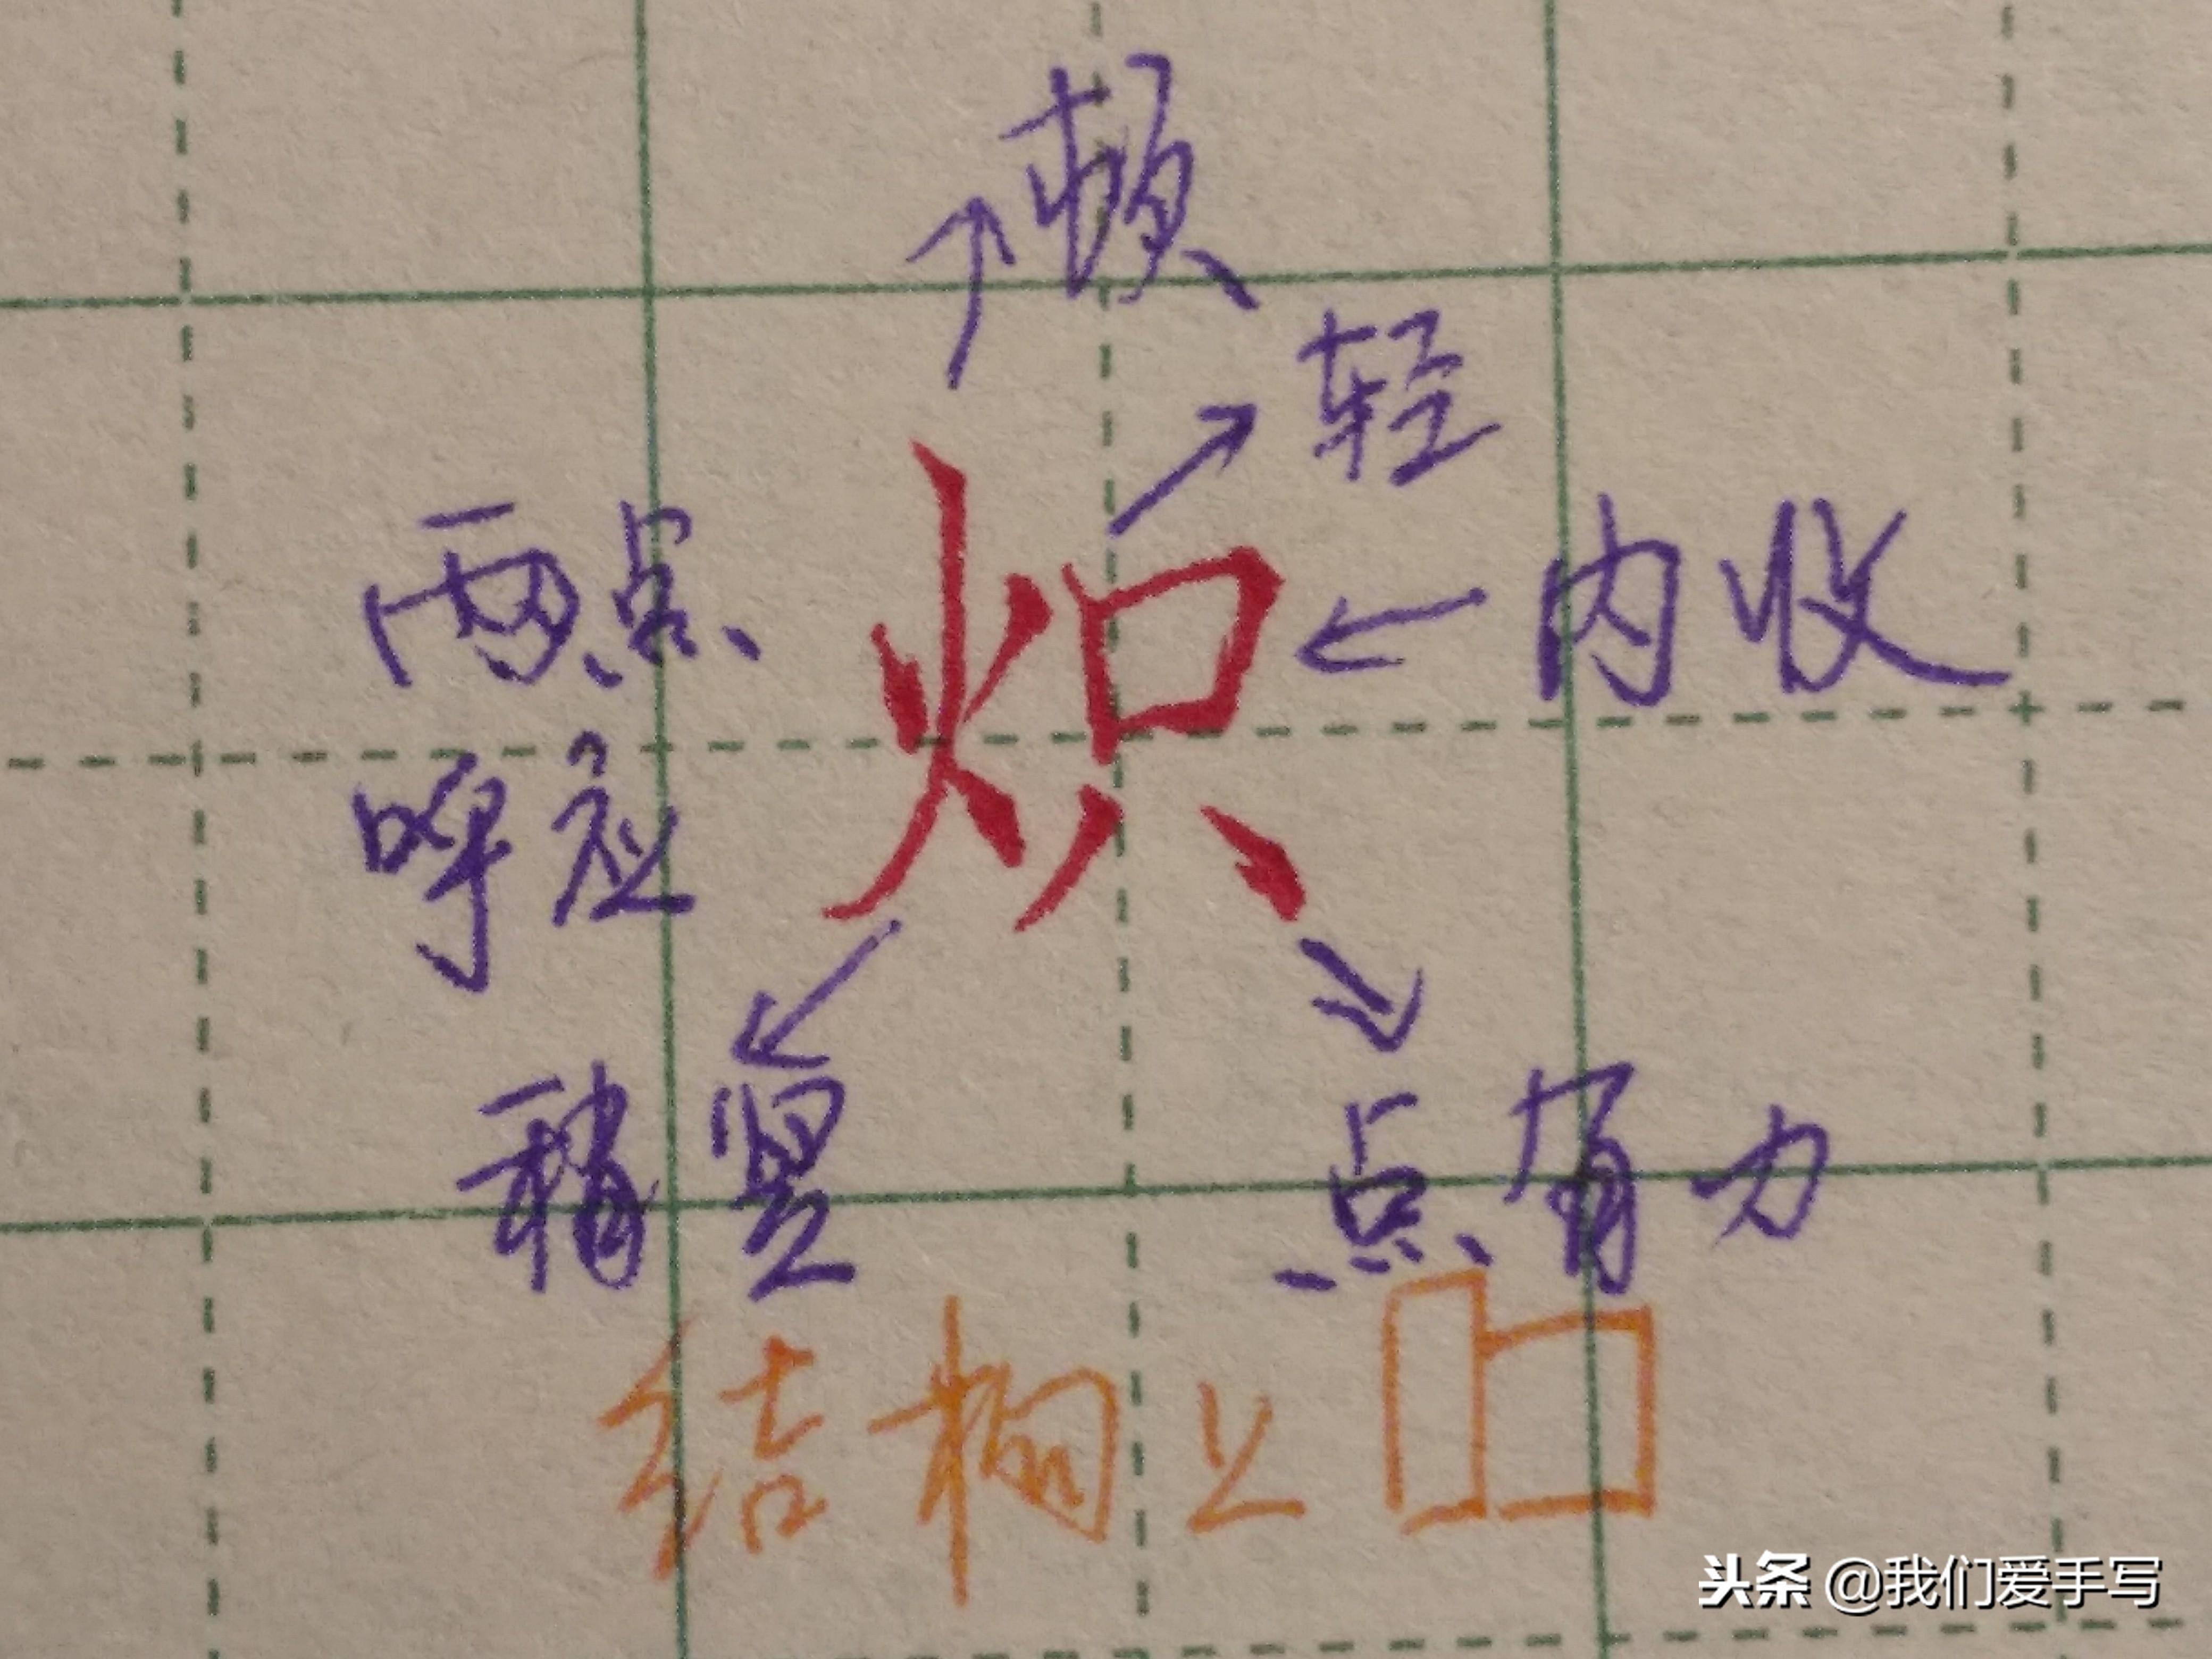 顿
轻
两点
内收
炽
呼应
稍竖
点有力
结构上
头条 @我们爱手写